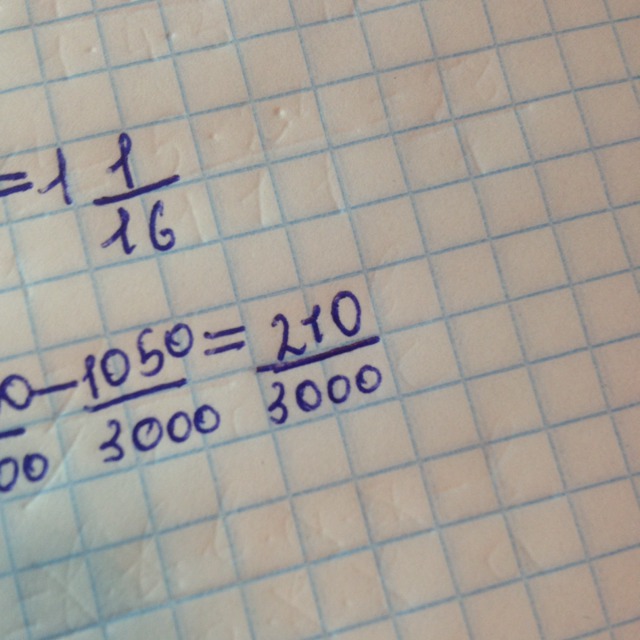 = 1 1/16
0 - 1050/3000 = 210/3000
00